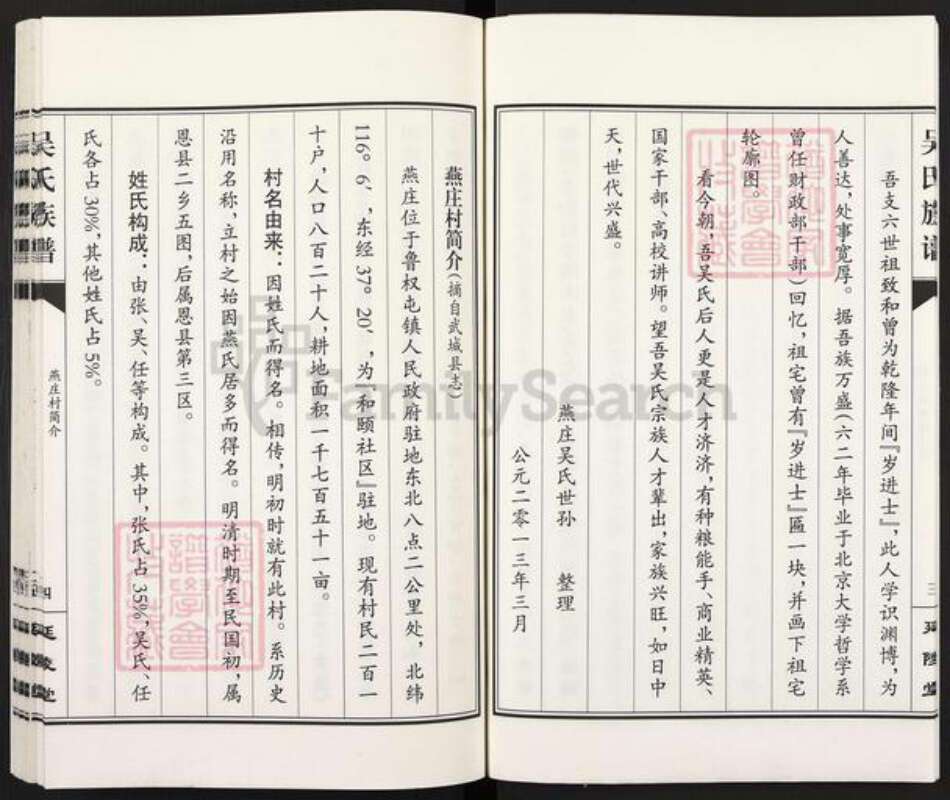 吴氏族谱
三
延陵堂
吾支六世祖致和曾为乾隆年间『岁进士』，此人学识渊博，为
人善达，处事宽厚。据吾族万盛（六二年毕业于北京大学哲学系
曾任财政部干部）回忆，祖宅曾有『岁进士』匾一块，并画下祖宅
轮廓图。
看今朝，吾吴氏后人更是人才济济，有种粮能手、商业精英、
国家干部、高校讲师。望吾吴氏宗族人才辈出，家族兴旺，如日中
天，世代兴盛。
燕庄吴氏世孙 整理
公元二零一三年三月
燕庄村简介（摘自武城县志）
燕庄位于鲁权屯镇人民政府驻地东北八点二公里处，北纬
116°6′，东经37°20′，为『和颐社区』驻地。现有村民二百一
十户，人口八百二十人，耕地面积一千七百五十一亩。
村名由来：因姓氏而得名。相传，明初时就有此村。系历史
沿用名称，立村之始因燕氏居多而得名。明清时期至民国初，属
恩县二乡五图，后属恩县第三区。
姓氏构成：由张、吴、任等构成。其中，张氏占35%，吴氏、任
氏各占30%，其他姓氏占5%。
吴氏族谱
燕庄村简介
四
延陵堂
FamilySearch